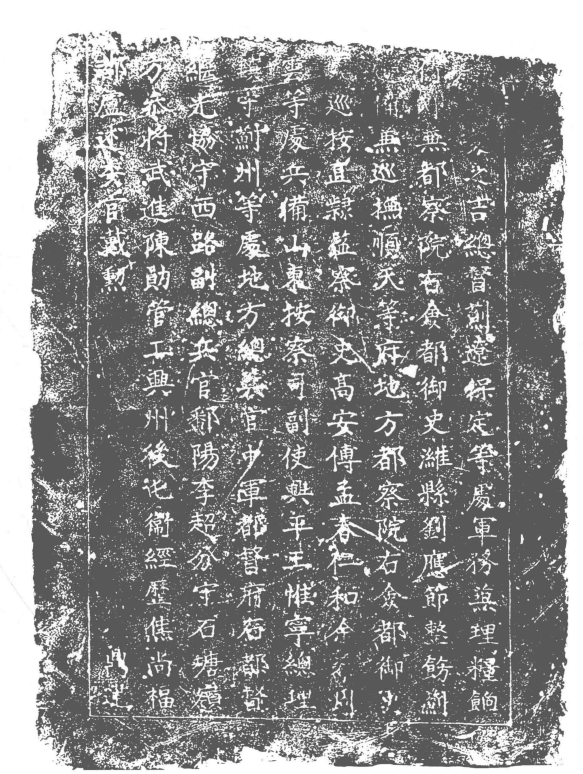 之吉總督薊遼保定等處軍務兼理糧餉
兼都察院右僉都御史濰縣劉應節整飭薊
備兼巡撫順天等府地方都察院右僉都御史
巡按直隸監察御史高安傅孟春仁和余
雲等處兵備山東按察司副使興平王惟寧總理
鎮守薊州等處地方總兵官中軍都督府右都督
繼光協守西路副總兵官鄱陽李超分守石塘嶺
方參將武進陳勛管工興州後屯衛經歷焦尚
官戴勳